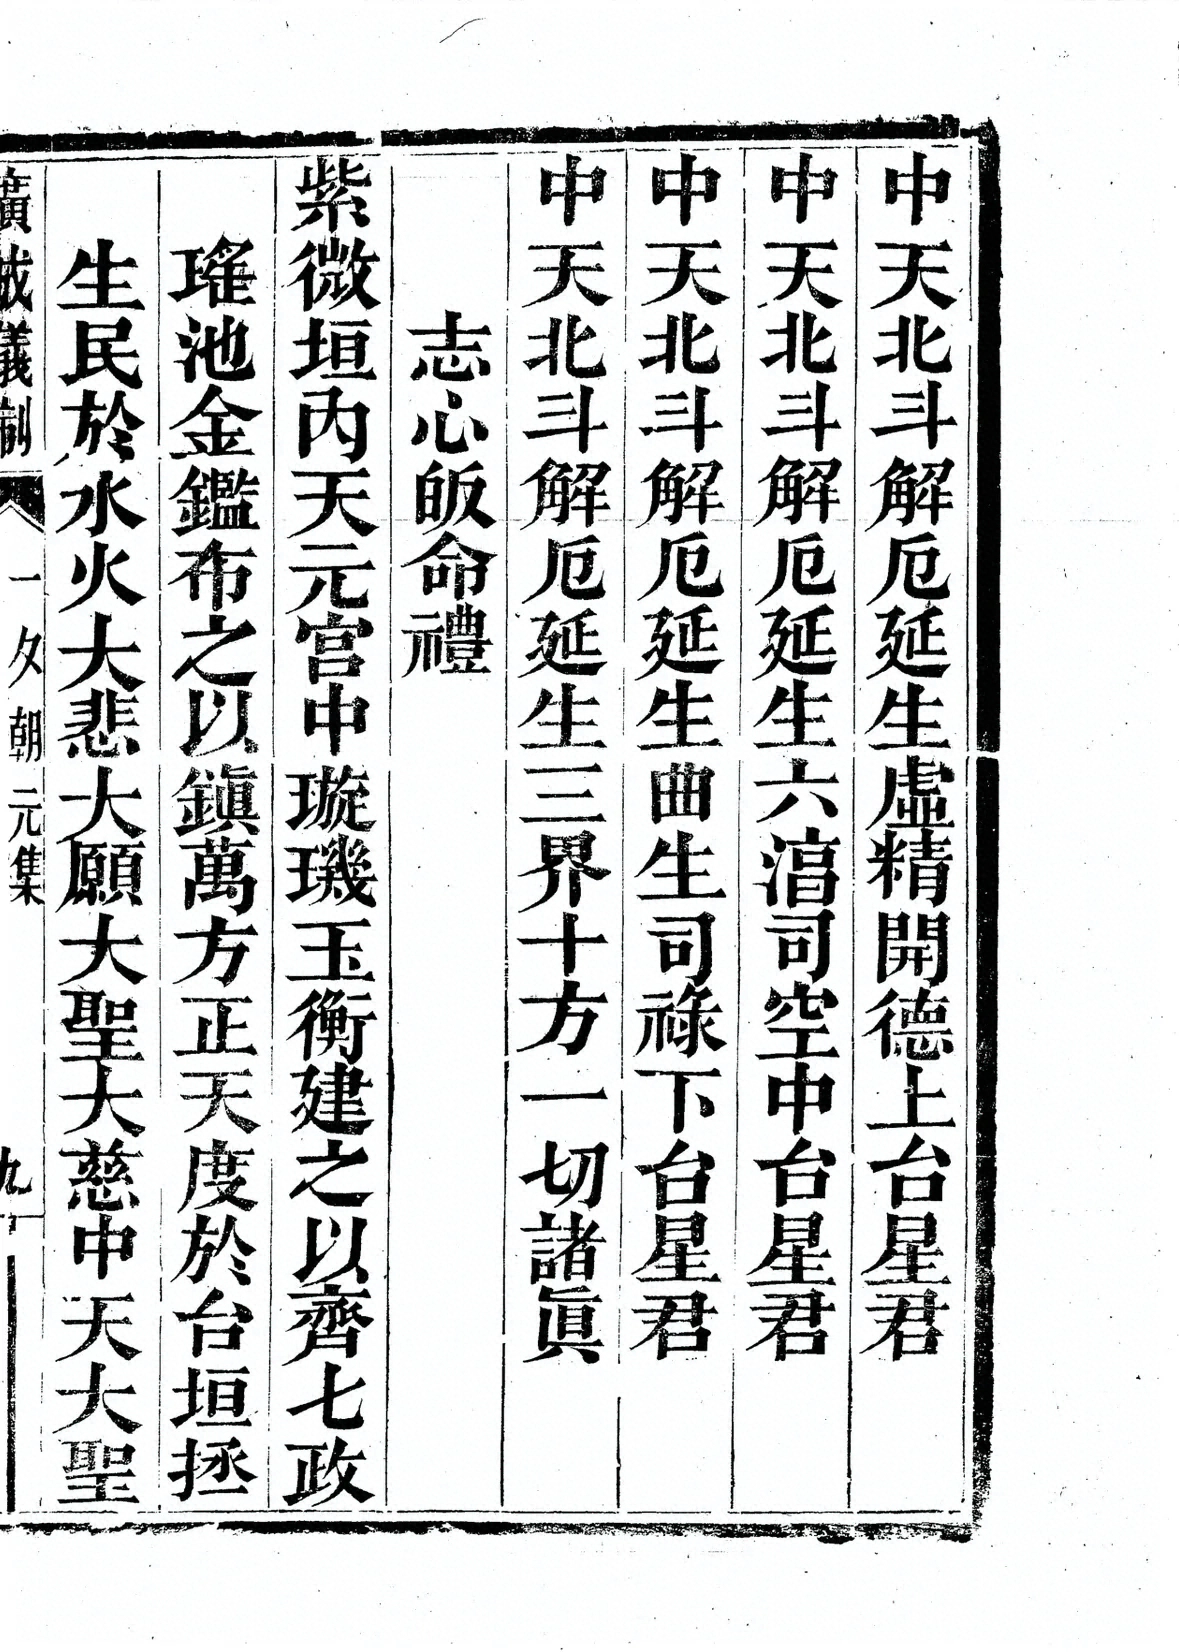 中天北斗解厄延生虛精開德上台星君
中天北斗解厄延生六淳司空中台星君
中天北斗解厄延生曲生司祿下台星君
中天北斗解厄延生三界十方一切諸眞
志心皈命禮
紫微垣內天元宮中璇璣玉衡建之以齊七政
瑤池金鑑布之以鎭萬方正天度於台垣拯
生民於水火大悲大願大聖大慈中天大聖
廣成儀制
一夕朝元集
九